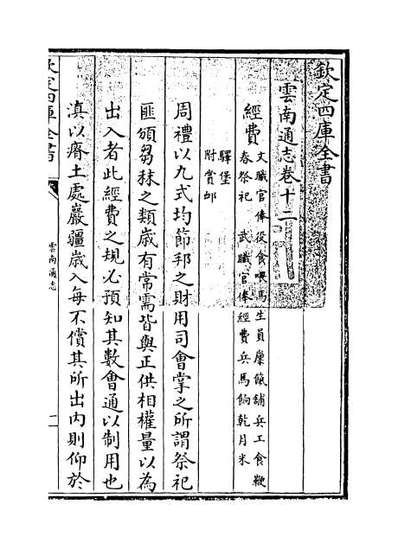 欽定四庫全書
雲南通志卷十二
經費 文職官俸役食喂馬生員廩餼舖兵工食鞭
春祭祀 武職官俸經費兵馬餉乾月米
驛堡
附賞卹
周禮以九式均節邦之財用司會掌之所謂祭祀
匪頒芻秣之類歲有常需皆與正供相權量以為
出入者此經費之規必預知其數會通以制用也
滇以瘠土處巖疆歲入每不償其所出內則仰於
欽定四庫全書
雲南通志
一